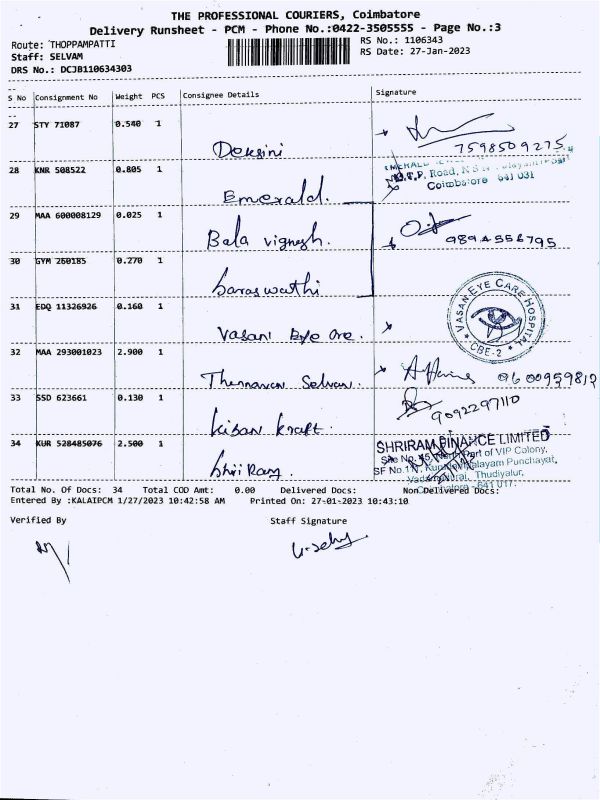 THE PROFESSIONAL COURIERS, Coimbatore
Delivery Runsheet - PCM - Phone No.:0422-3505555 - Page No.:3
Route: THOPPAMPATTI RS No.: 1106343
Staff: SELVAM RS Date: 27-Jan-2023
DRS No.: DCJB110634303
S No Consignment No Weight PCS Consignee Details Signature
27 STY 71087 0.540 1
Deksini 7598509275
28 KNR 508522 0.805 1 EMERALD
Road, N S N
Coimbatore 641 031
Emerald.
29 MAA 600008129 0.025 1
Bala vignesh. 9894556795
30 GYM 260185 0.270 1
Saraswathi
31 EDQ 11326926 0.160 1 VASAN EYE CARE HOSPITAL
* CBE-2 *
Vasan Eye
32 MAA 293001023 2.900 1
Thennavan Selvan 9600959812
33 SSD 623661 0.130 1
9092297110
kisan kraft.
34 KUR 528485076 2.500 1 SHRIRAM FINANCE LIMITED
Site No. 45, Part of VIP Colony,
SF No.1 Panchayat,
Thudiyalur,
641 017.
Shri Ram.
Total No. Of Docs: 34 Total COD Amt: 0.00 Delivered Docs: Non Delivered Docs:
Entered By :KALAIPCM 1/27/2023 10:42:58 AM Printed On: 27-01-2023 10:43:10
Verified By Staff Signature